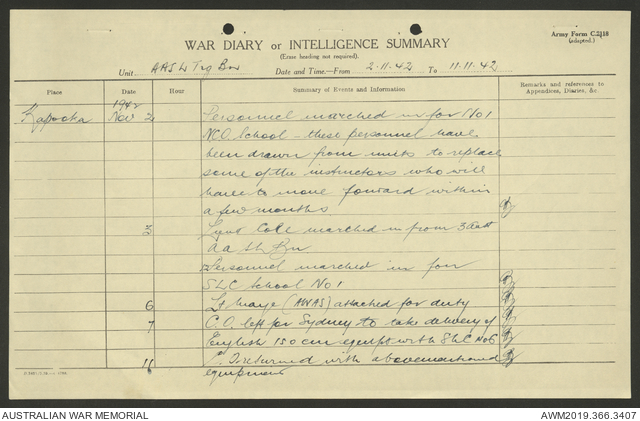 Army Form C.2118
(adapted.)
WAR DIARY or INTELLIGENCE SUMMARY
(Erase heading not required).
Unit AASL Trg Bn
Date and Time—From 2-11-42 To 11-11-42
Place
Date
Hour
Summary of Events and Information
Remarks and references to
Appendices, Diaries, &c.
1942
Kapooka Nov 2 Personnel marched in for No 1
NCO School - these personnel have
been drawn from units to replace
some of the instructors who will
have to move forward within
a few months.
3 Lieut Cole marched in from 3 Aust
AA SL Bn
Personnel marched in for
SLC School No 1
6 Lt (AWAS) attached for duty
7 C.O. left for Sydney to take delivery of
English 150 cm equipt with SLC No 6
11 C.O. returned with abovementioned
equipment
AUSTRALIAN WAR MEMORIAL
AWM2019.366.3407